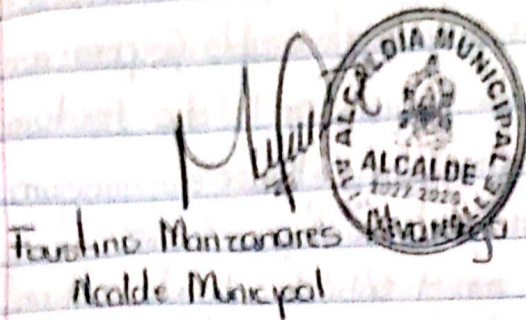 ALCALDÍA MUNICIPAL
ALCALDE
Faustino Manzanares
Alcalde Municipal